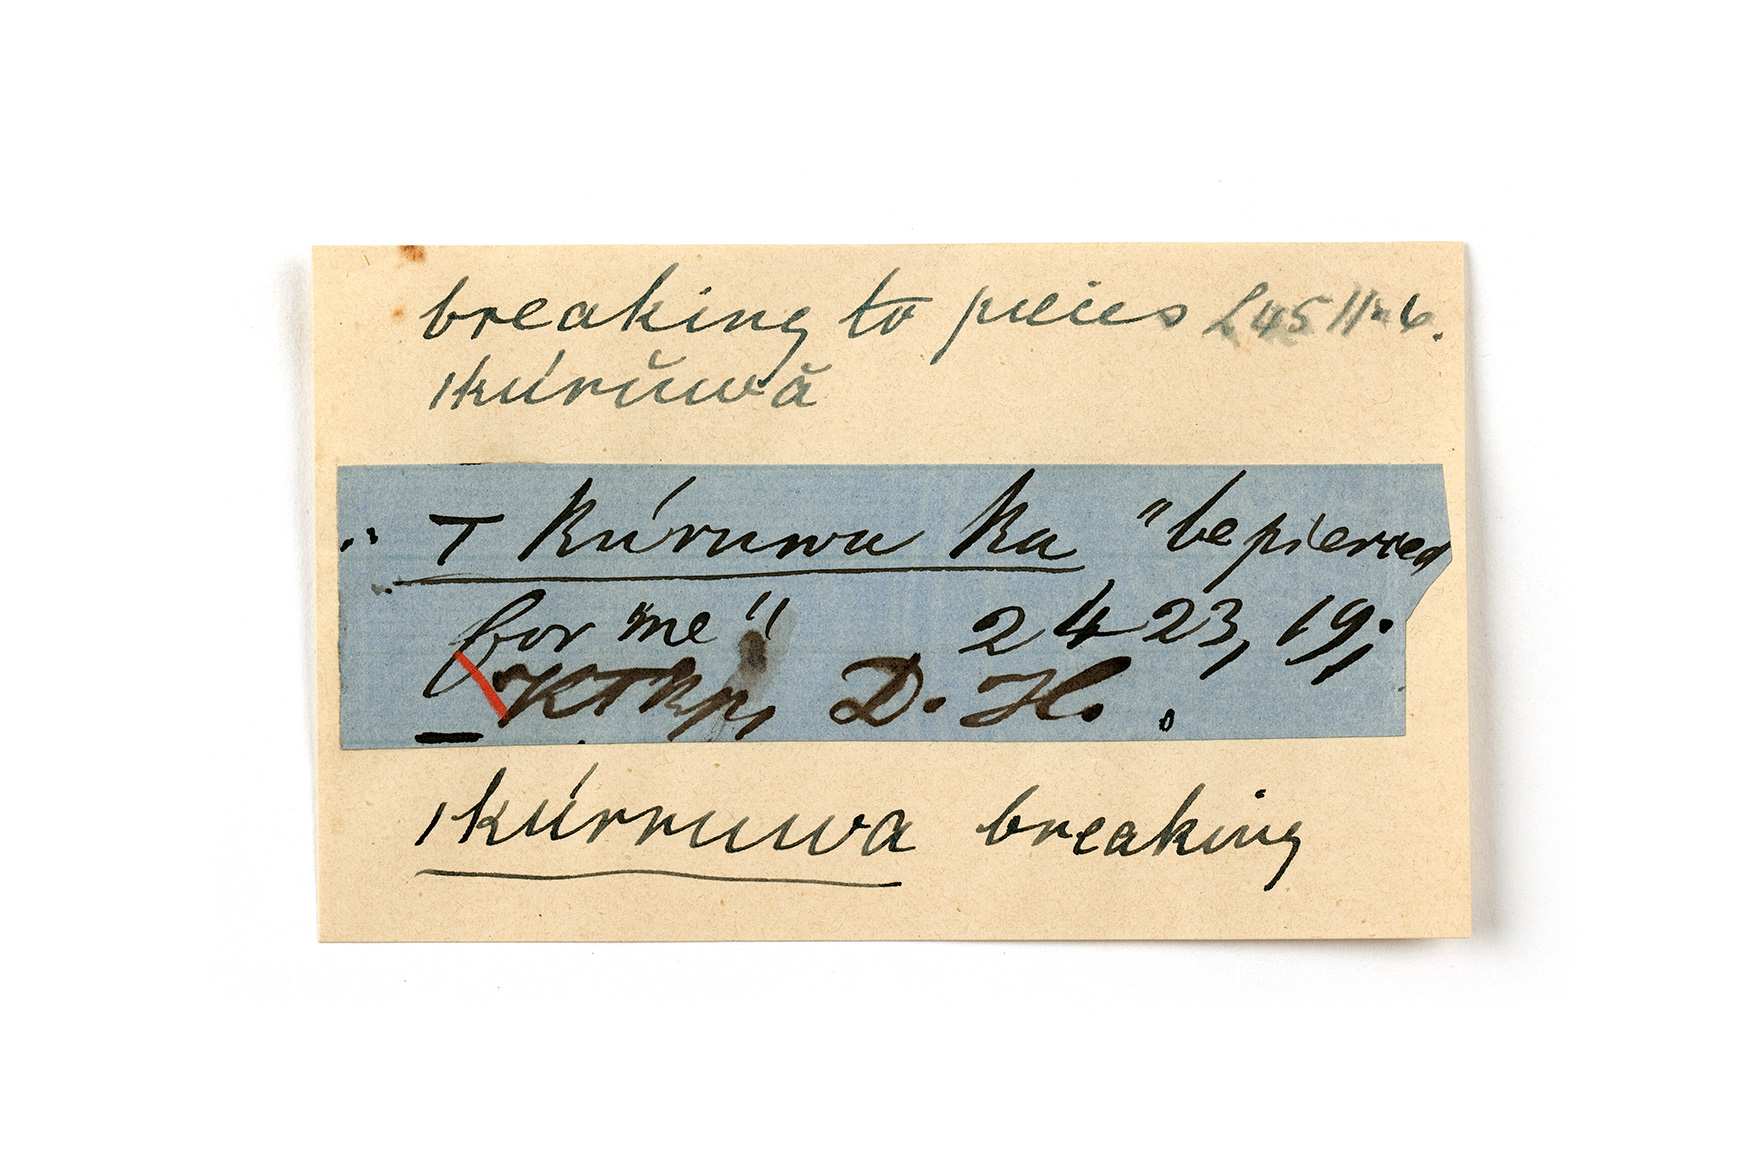 breaking to pieces L45
ıkúrŭwă
T kúruwa ka "be pierced
for me" 2423, 19;
D. H.
ıkúrruwa breaking